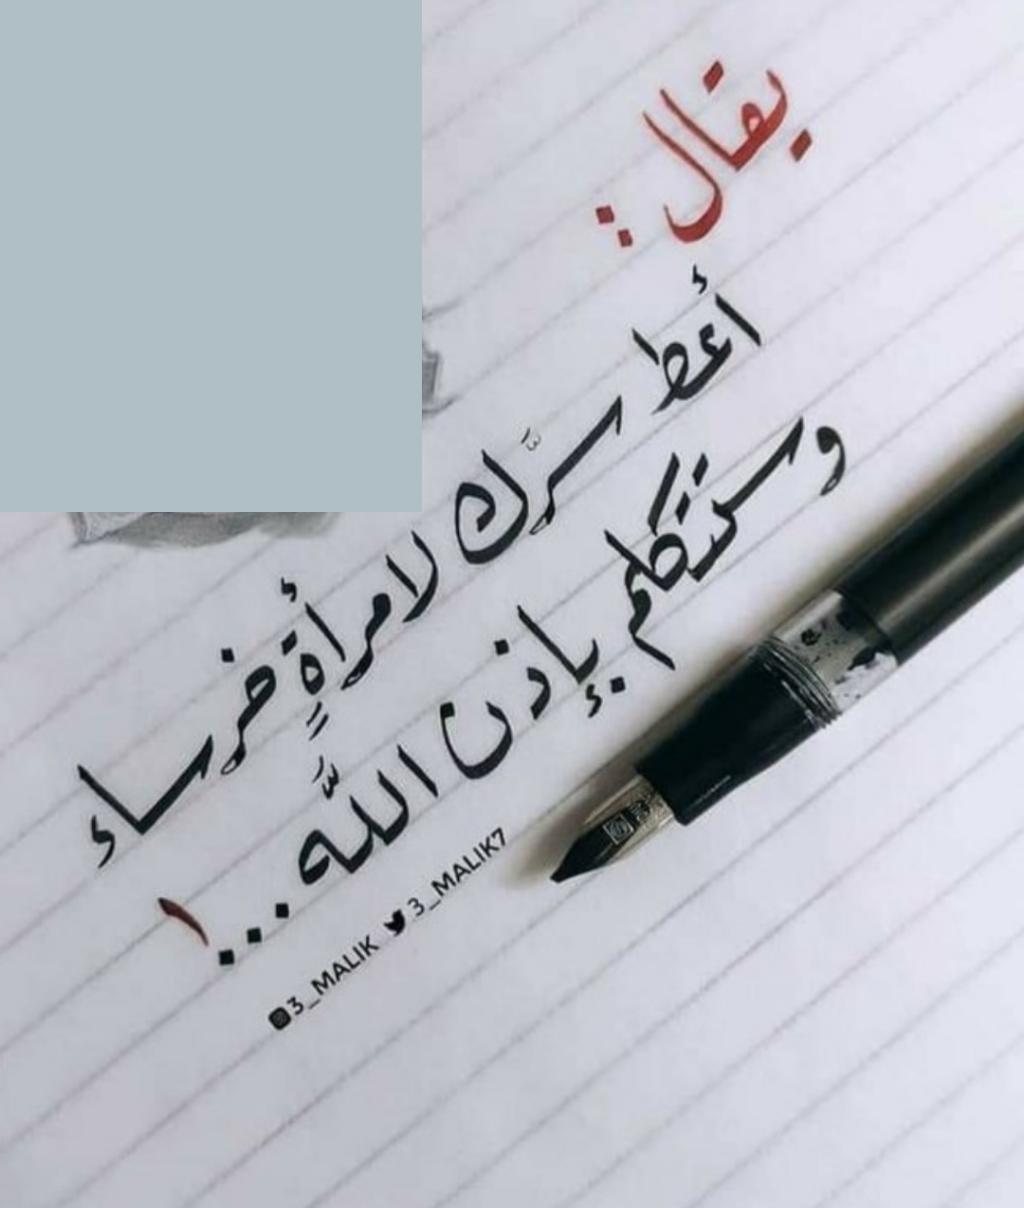 يقال :
أعط سرَّك لامرأةٍ خرساء
وستتكلم بإذن اللَّه ...!
3_MALIK 3_MALIK7